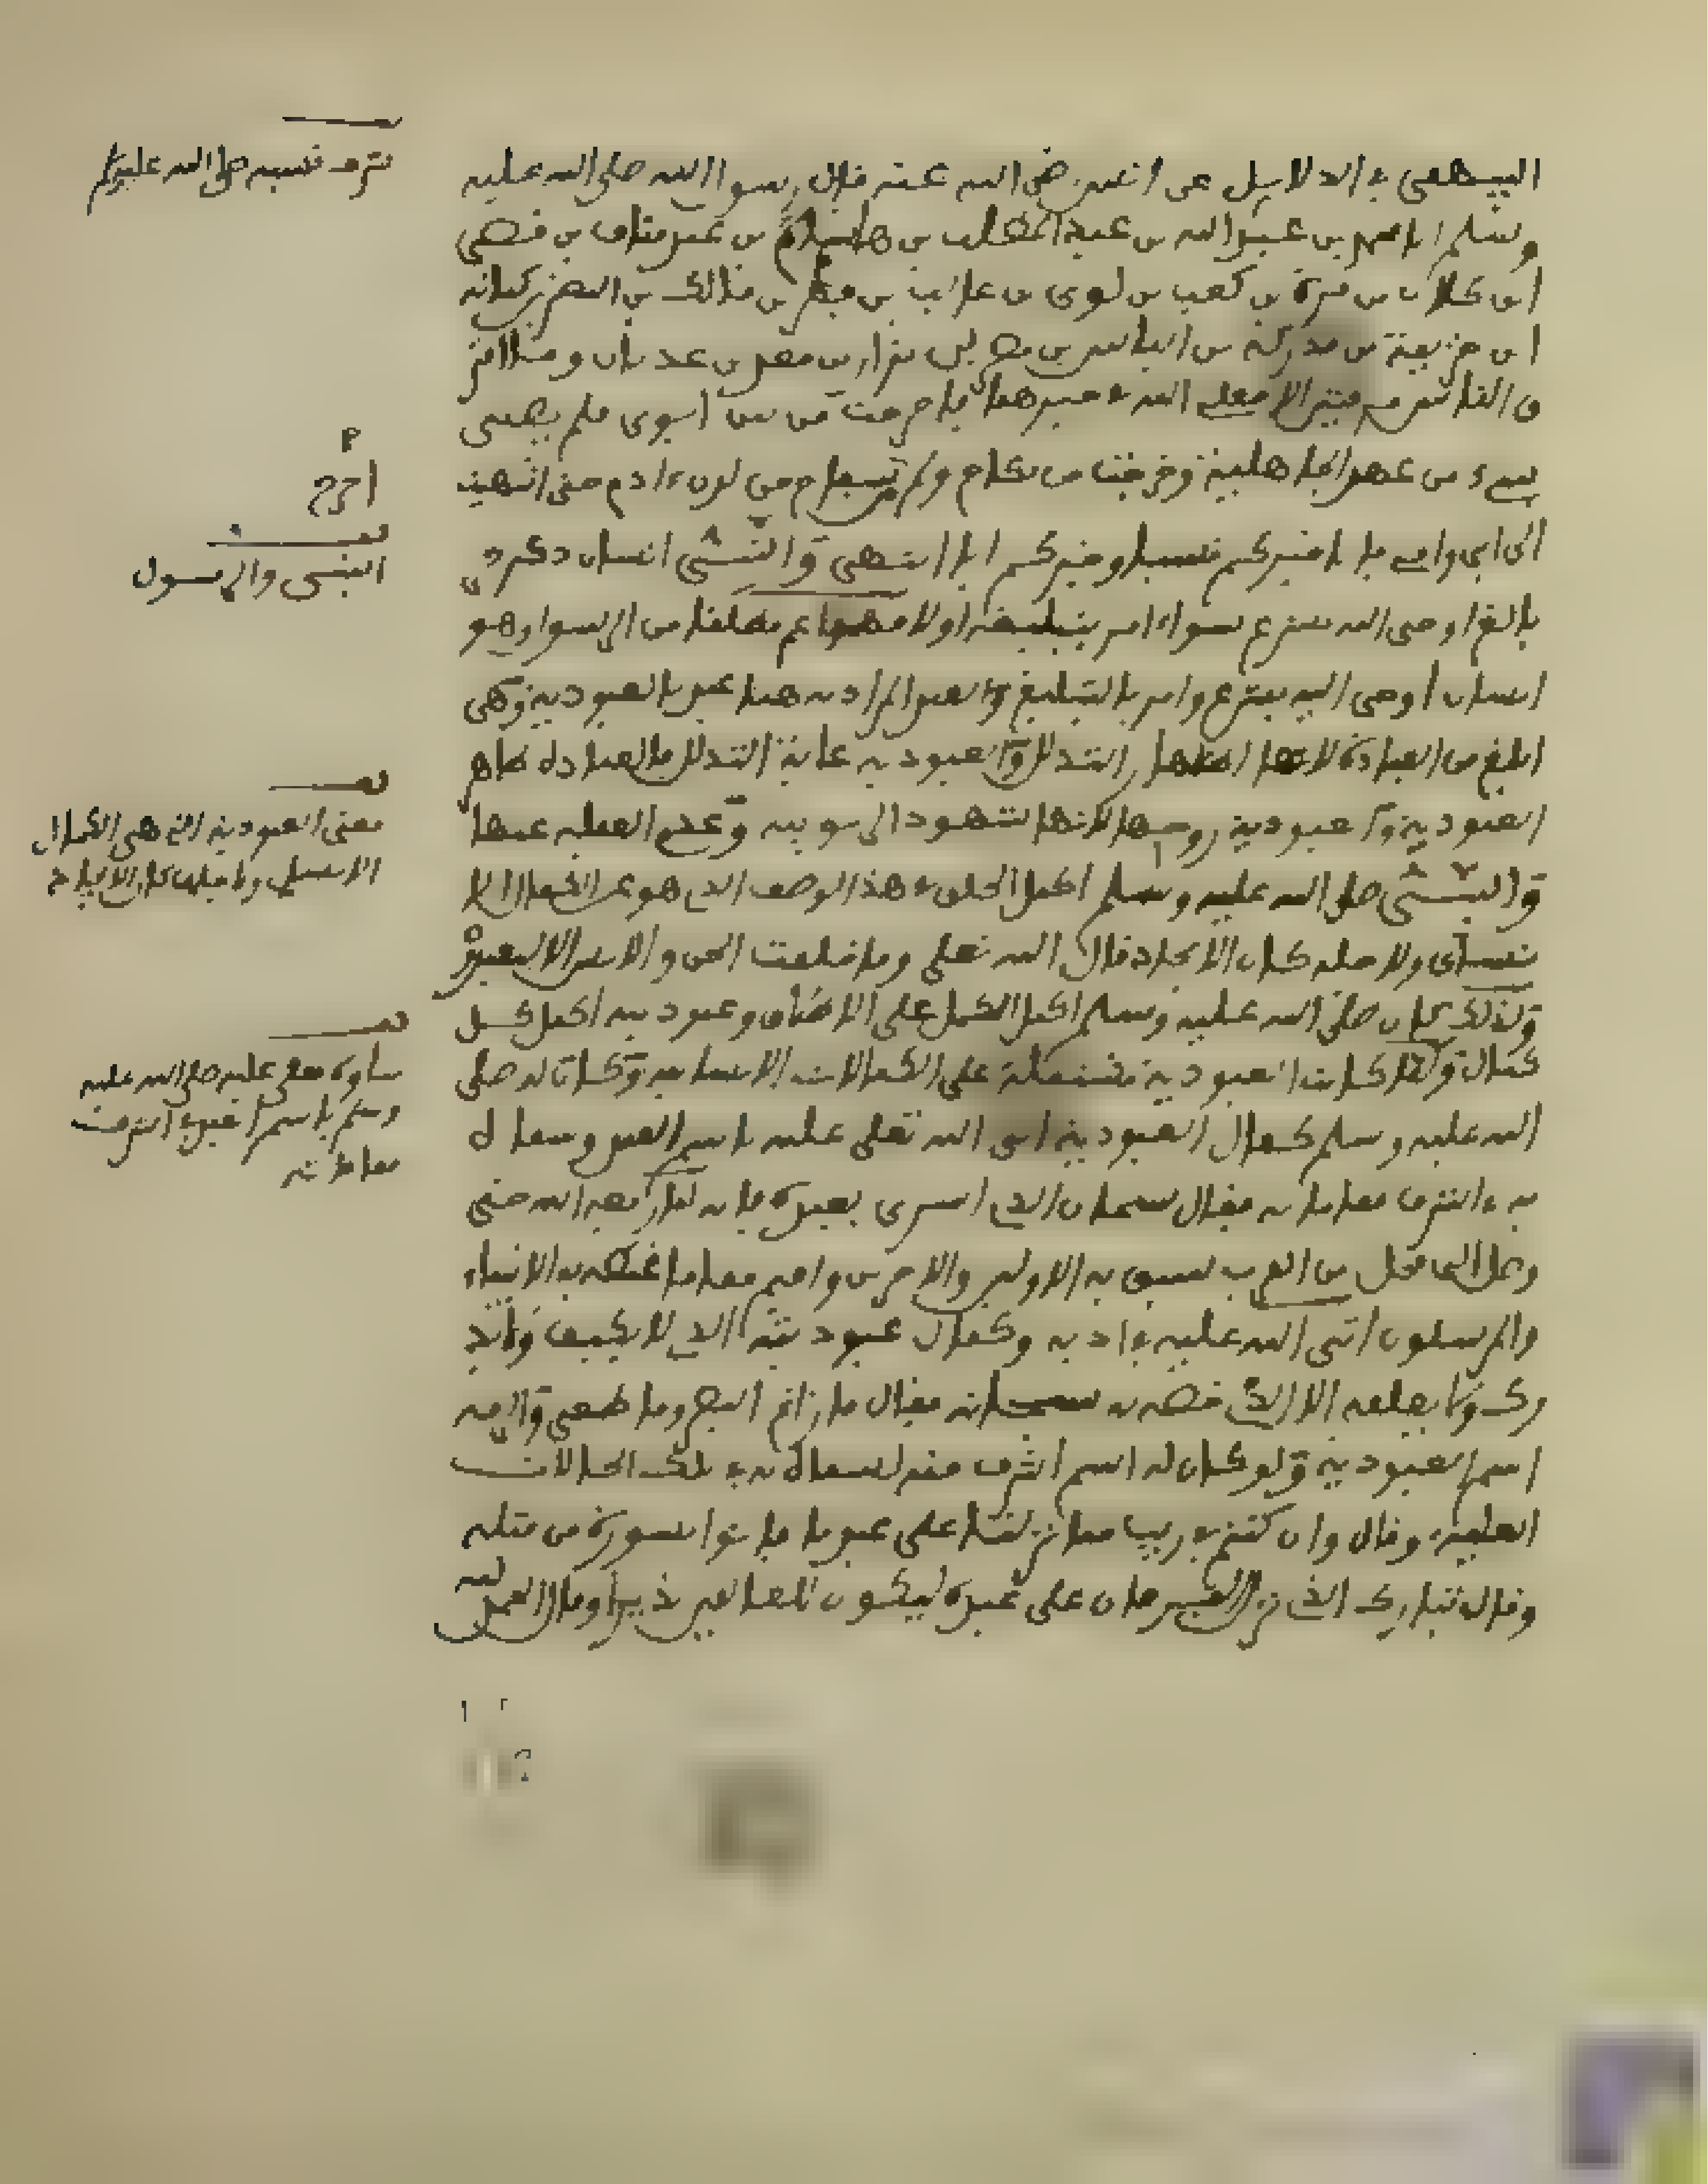 البيهقي في الدلايل عن انس رضي الله عنه قال رسول الله صلى الله عليه
وسلم انا محمد بن عبد الله بن عبد المطلب بن هاشم بن عبد مناف بن قصي
ابن كلاب بن مرة بن كعب بن لوي بن غالب بن فهر بن مالك بن النضر بن كنانة
ابن خزيمة بن مدركة بن الياس بن مضر بن نزار بن معد بن عدنان وما افتر
ق الناس فرقتين الا جعلني الله في خيرهما فاخرجت من بين ابوي فلم يصبني
شيء من عهد الجاهلية وخرجت من نكاح ولم اخرج من سفاح من لدن ءادم حتى انتهيت
الى ابي وامي فانا خيركم نسبا وخيركم ابا انتهى والنبيء انسان ذكر
بالغ اوحى الله بشرع سواء امر بتبليغه او لا فهو اعم مطلقا من الرسول وهو
انسان اوحي اليه بشرع وامر بالتبليغ والعبد المراد به هنا عبد بالعبودية وهي
ابلغ من العبادة لانها اظهار التذلل والعبودية غاية التذلل فالعبادة ظاهر
العبودية والعبودية روحها لانها شهود الربوبية وعدم الغفلة عنها
والنبيء صلى الله عليه وسلم اكمل الخلق في هذا الوصف الذي هو عين الكمال الا
نساني ولاجله كان الايجاد قال الله تعلى وما خلقت الجن والانس الا ليعبدون
ولذلك كان صلى الله عليه وسلم اكمل الكمل على الاطلاق وعبوديته اكمل كل
كمال ولما كانت العبودية مشتملة على الكمالات الانسانية وكان له صلى
الله عليه وسلم كمال العبودية اثنى الله تعلى عليه باسم العبد وسماه
به في اشرف مقاماته فقال سبحان الذي اسرى بعبده فانه
من القرب لم يسبق به الاولين والاخرين واقيم مقاما غبطه به الانبياء
والمرسلون اثنى الله عليه في ادبه وكمال عبوديته الذي لا يكيف ولا يد
رك ولا يعلمه الا الذي خصه به سبحانه فقال ما زاغ البصر وما طغى والزمه
اسم العبودية ولو كان له اسم اشرف منه لسماه به في تلك الحالات
العلية وقال وان كنتم في ريب مما نزلنا على عبدنا فاتوا بسورة من مثله
وقال تبارك الذي نزل الفرقان على عبده ليكون للعالمين نذيرا وقال الحمد لله
شرف نسبه صلى الله عليه وسلم
اخرج
قف
النبيء والرسول
قف
معنى العبودية التي هي الكمال
الانساني ولاجلها كان الايجاد
قف
ثناؤه تعلى عليه صلى الله عليه
وسلم باسم العبد في اشرف
مقاماته